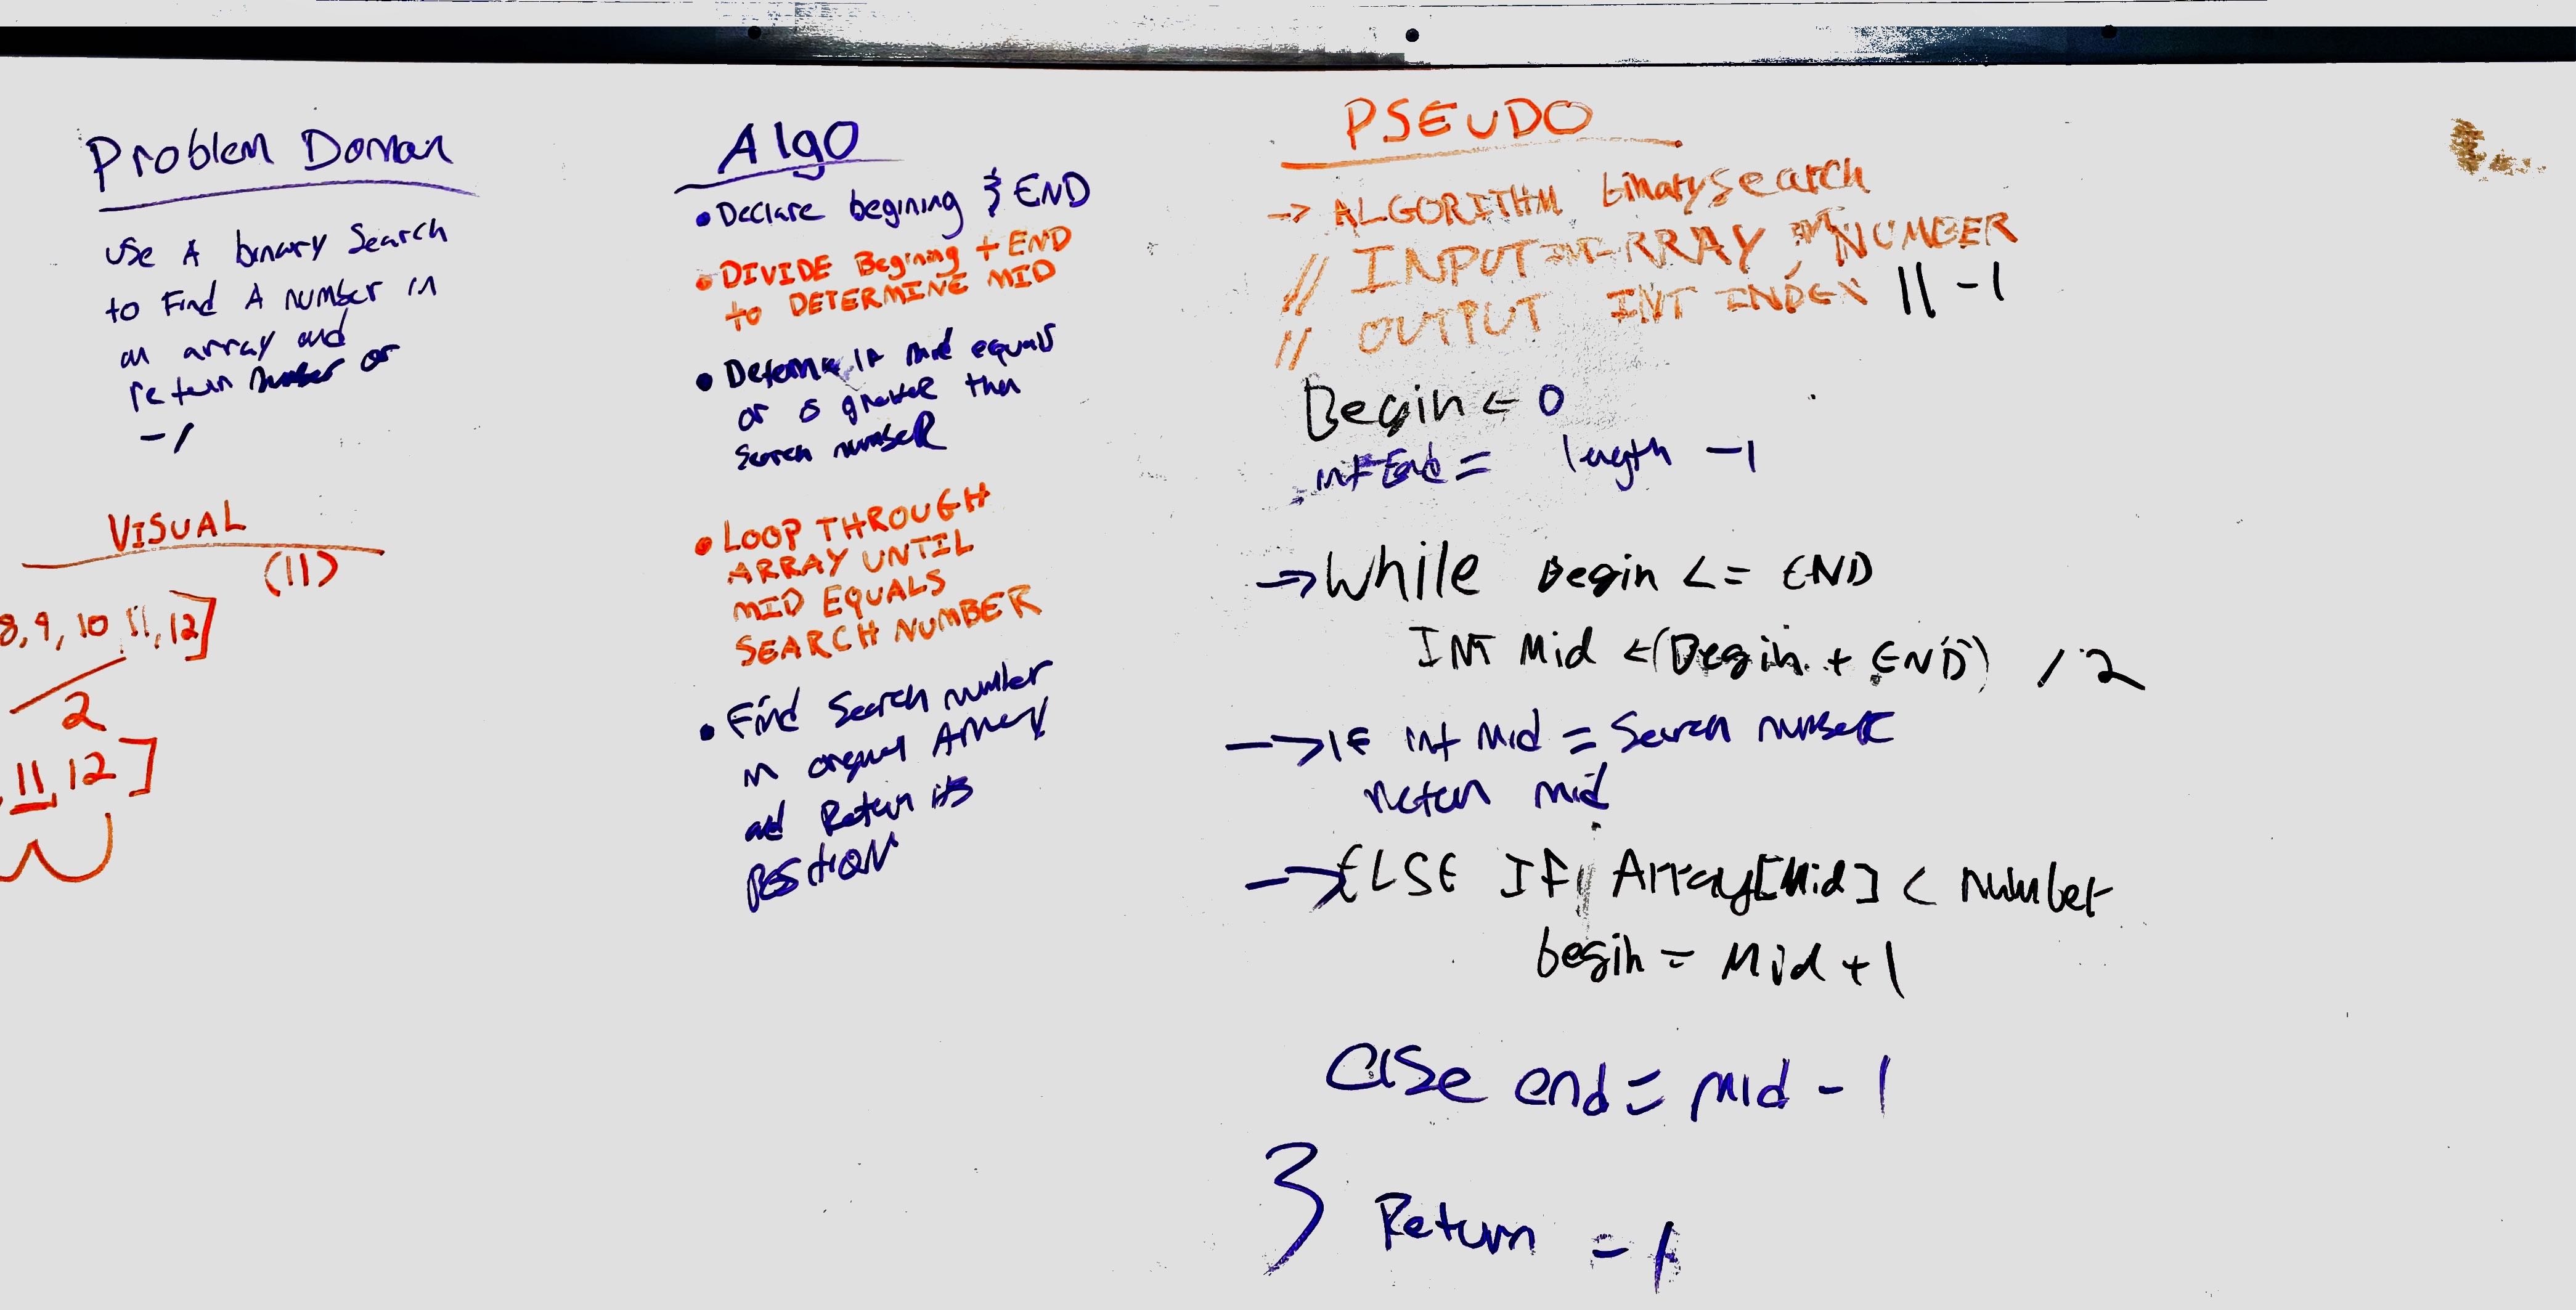 Problem Domain
Use A binary Search
to Find A number in
an array and
return number or
-1
VISUAL
(11)
8, 9, 10 11, 12]
2
11, 12]
Algo
• Declare begining & END
• DIVIDE Begining + END
to DETERMINE MID
• Determine IF Mid equals
or is greater then
Search number
• LOOP THROUGH
ARRAY UNTIL
MID EQUALS
SEARCH NUMBER
• Find Search number
in original Array
and Return its
position
PSEUDO
-> ALGORITHM binarySearch
// INPUT INT ARRAY, INT NUMBER
// OUTPUT INT INDEX || -1
Begin <- 0
int End = length -1
-> While Begin <= END
INT Mid <- (Begin + END) / 2
-> IF int Mid = Search number
return mid
-> ELSE IF Array[Mid] < number
begin = Mid +1
else end = mid - 1
} Return -1